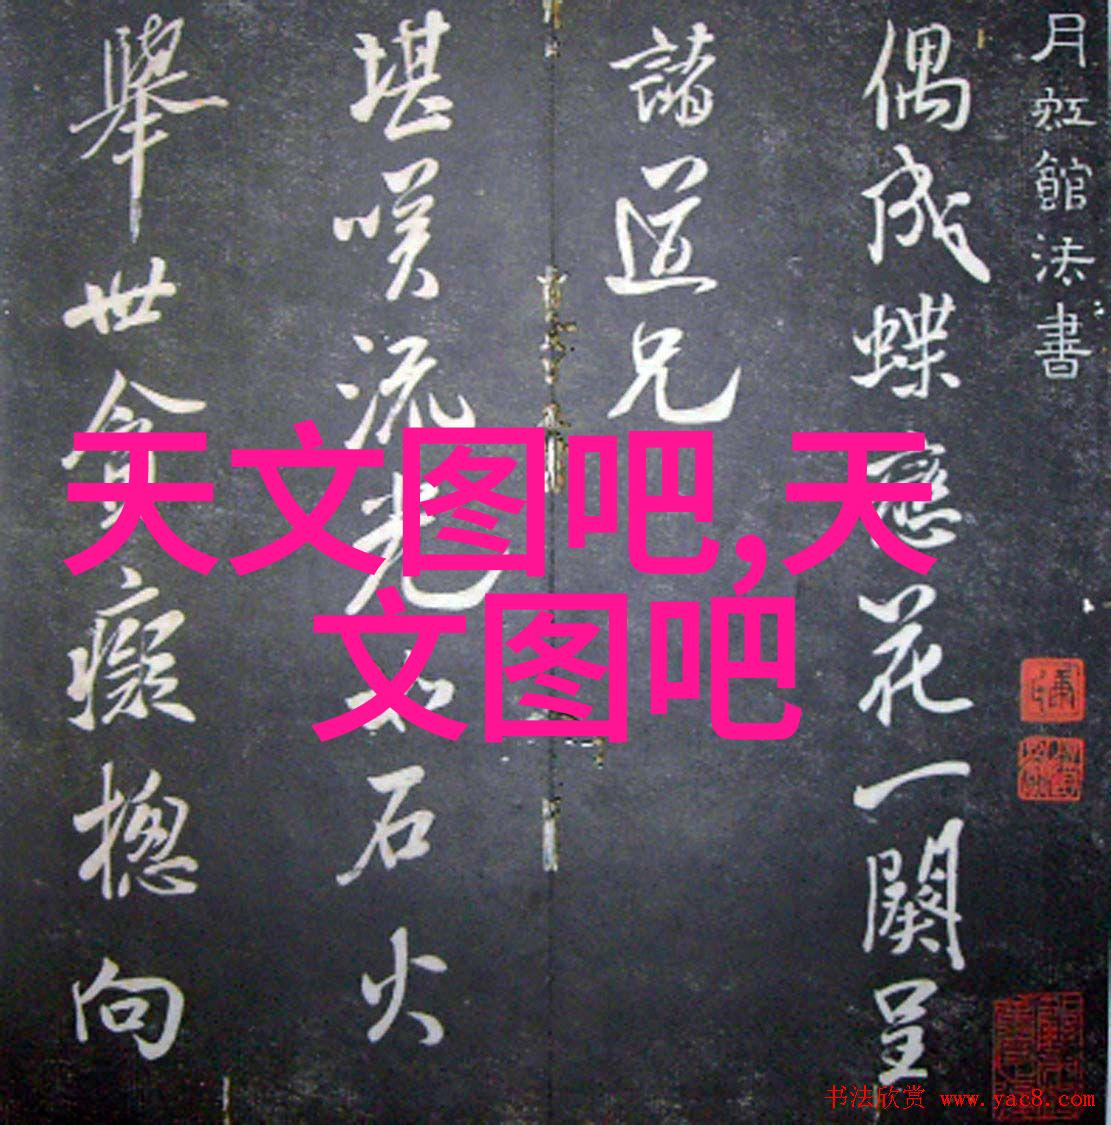 月虹館法書
偶成蝶戀花一闋呈
諸道兄
堪嘆流光如石火
舉世貪癡擾向
天文图吧,天
文图吧
书法欣赏 www.yac8.com